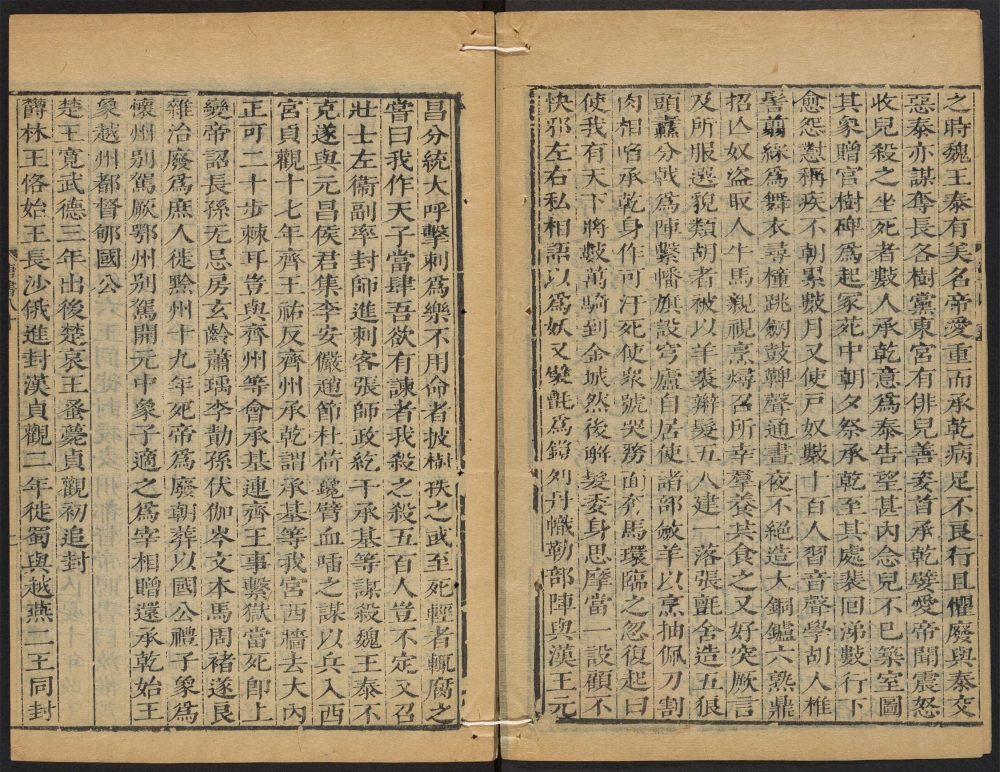 之時魏王泰有美名帝愛重而承乾病足不良行且懼廢與泰交
惡泰亦謀奪長各樹黨東宮有俳兒善姿首承乾嬖愛帝聞震怒
收兒殺之坐死者數人承乾意爲泰告望甚內念兒不已築室圖
其象贈官樹碑爲起冢死中朝夕祭承乾至其處裴回涕數行下
愈怨懟稱疾不朝累數月又使戶奴數十百人習音聲學胡人椎
髻翦綵爲舞衣尋橦跳劒鼓鞞聲通晝夜不絕造大銅鑪六熟鼎
招亾奴盜取人牛馬親視烹燖召所幸羣養共食之又好突厥言
及所服選貌類胡者被以羊裘辮髮五人建一落張氈舍造五狼
頭纛分戟爲陣繫幡旗設穹廬自居使諸部斂羊以烹抽佩刀割
肉相啗承乾身作可汗死使衆號哭剺面奔馬環臨之忽復起曰
使我有天下將數萬騎到金城然後解髮委身思摩當一設顧不
快邪左右私相語以爲妖又襞氈爲鎧列丹幟勒部陣與漢王元
昌分統大呼擊刺爲樂不用命者披樹抶之或至死輕者輒腐之
嘗曰我作天子當肆吾欲有諫者我殺之殺五百人豈不定又召
壯士左衞副率封師進刺客張師政紇干承基等謀殺魏王泰不
克遂與元昌侯君集李安儼趙節杜荷鑱臂血㗖之謀以兵入西
宮貞觀十七年齊王祐反齊州承乾謂承基等我宮西牆去大內
正可二十步棘耳豈與齊州等會承基連齊王事繫獄當死卽上
變帝詔長孫无忌房玄齡蕭瑀李勣孫伏伽岑文本馬周褚遂良
雜治廢爲庶人徙黔州十九年死帝爲廢朝葬以國公禮子象爲
懷州别駕厥鄂州别駕開元中象子適之爲宰相贈還承乾始王
象越州都督郇國公
楚王寬武德三年出後楚哀王蚤薨貞觀初追封
欎林王恪始王長沙俄進封漢貞觀二年徙蜀與越燕二王同封